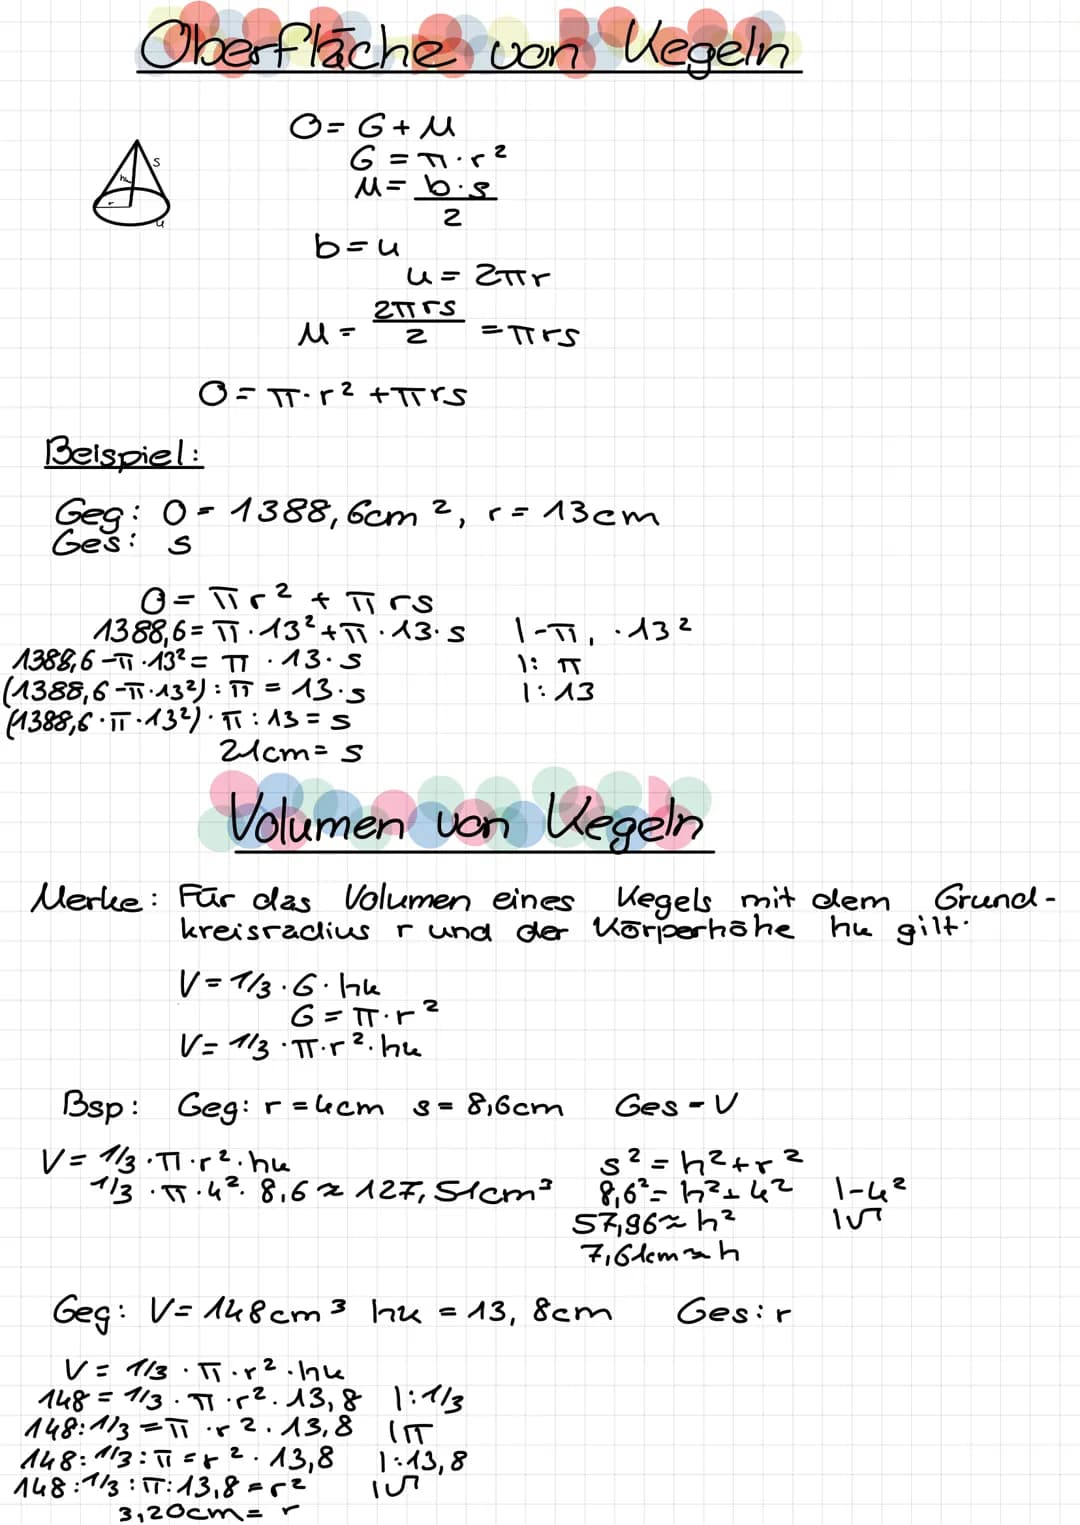 Oberfläche von Kegeln
O = G + M
G = π · r²
M = b · s / 2
s
hk
r
u
b = u
u = 2πr
M = 2πrs / 2 = πrs
O = π · r² + πrs
Beispiel:
Geg: O = 1388,6cm², r = 13cm
Ges: s
O = πr² + πrs
1388,6 = π · 13² + π · 13 · s |-π, · 13²
1388,6 - π · 13² = π · 13 · s |: π
(1388,6 - π · 13²) : π = 13 · s |: 13
(1388,6 · π · 13²) · π : 13 = s
21cm = s
Volumen von Kegeln
Merke: Für das Volumen eines Kegels mit dem Grund-
kreisradius r und der Körperhöhe hk gilt:
V = 1/3 · G · hk
G = π · r²
V = 1/3 · π · r² · hk
Bsp: Geg: r = 4cm s = 8,6cm Ges - V
V = 1/3 · π · r² · hk
1/3 · π · 4² · 8,6 ≈ 127,51cm³
s² = h² + r²
8,6² = h² + 4² |-4²
57,96 ≈ h² |√
7,61cm ≈ h
Geg: V = 148cm³ hk = 13,8cm Ges: r
V = 1/3 · π · r² · hk
148 = 1/3 · π · r² · 13,8 |: 1/3
148 : 1/3 = π · r² · 13,8 |π
148 : 1/3 : π = r² · 13,8 |: 13,8
148 : 1/3 : π : 13,8 = r² |√
3,20cm = r